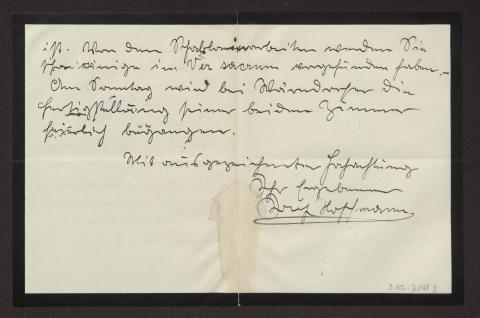 ist. Von den Schablonenarbeiten werden Sie
schon einige im Ver sacrum vorgefunden haben.–
Am Sonntag wird bei Wärndorfer die
Fertigstellung seiner beiden Zimmer
feierlich begangen.
Mit ausgezeichneter Hochachtung
Ihr Ergebener
Josef Hoffmann